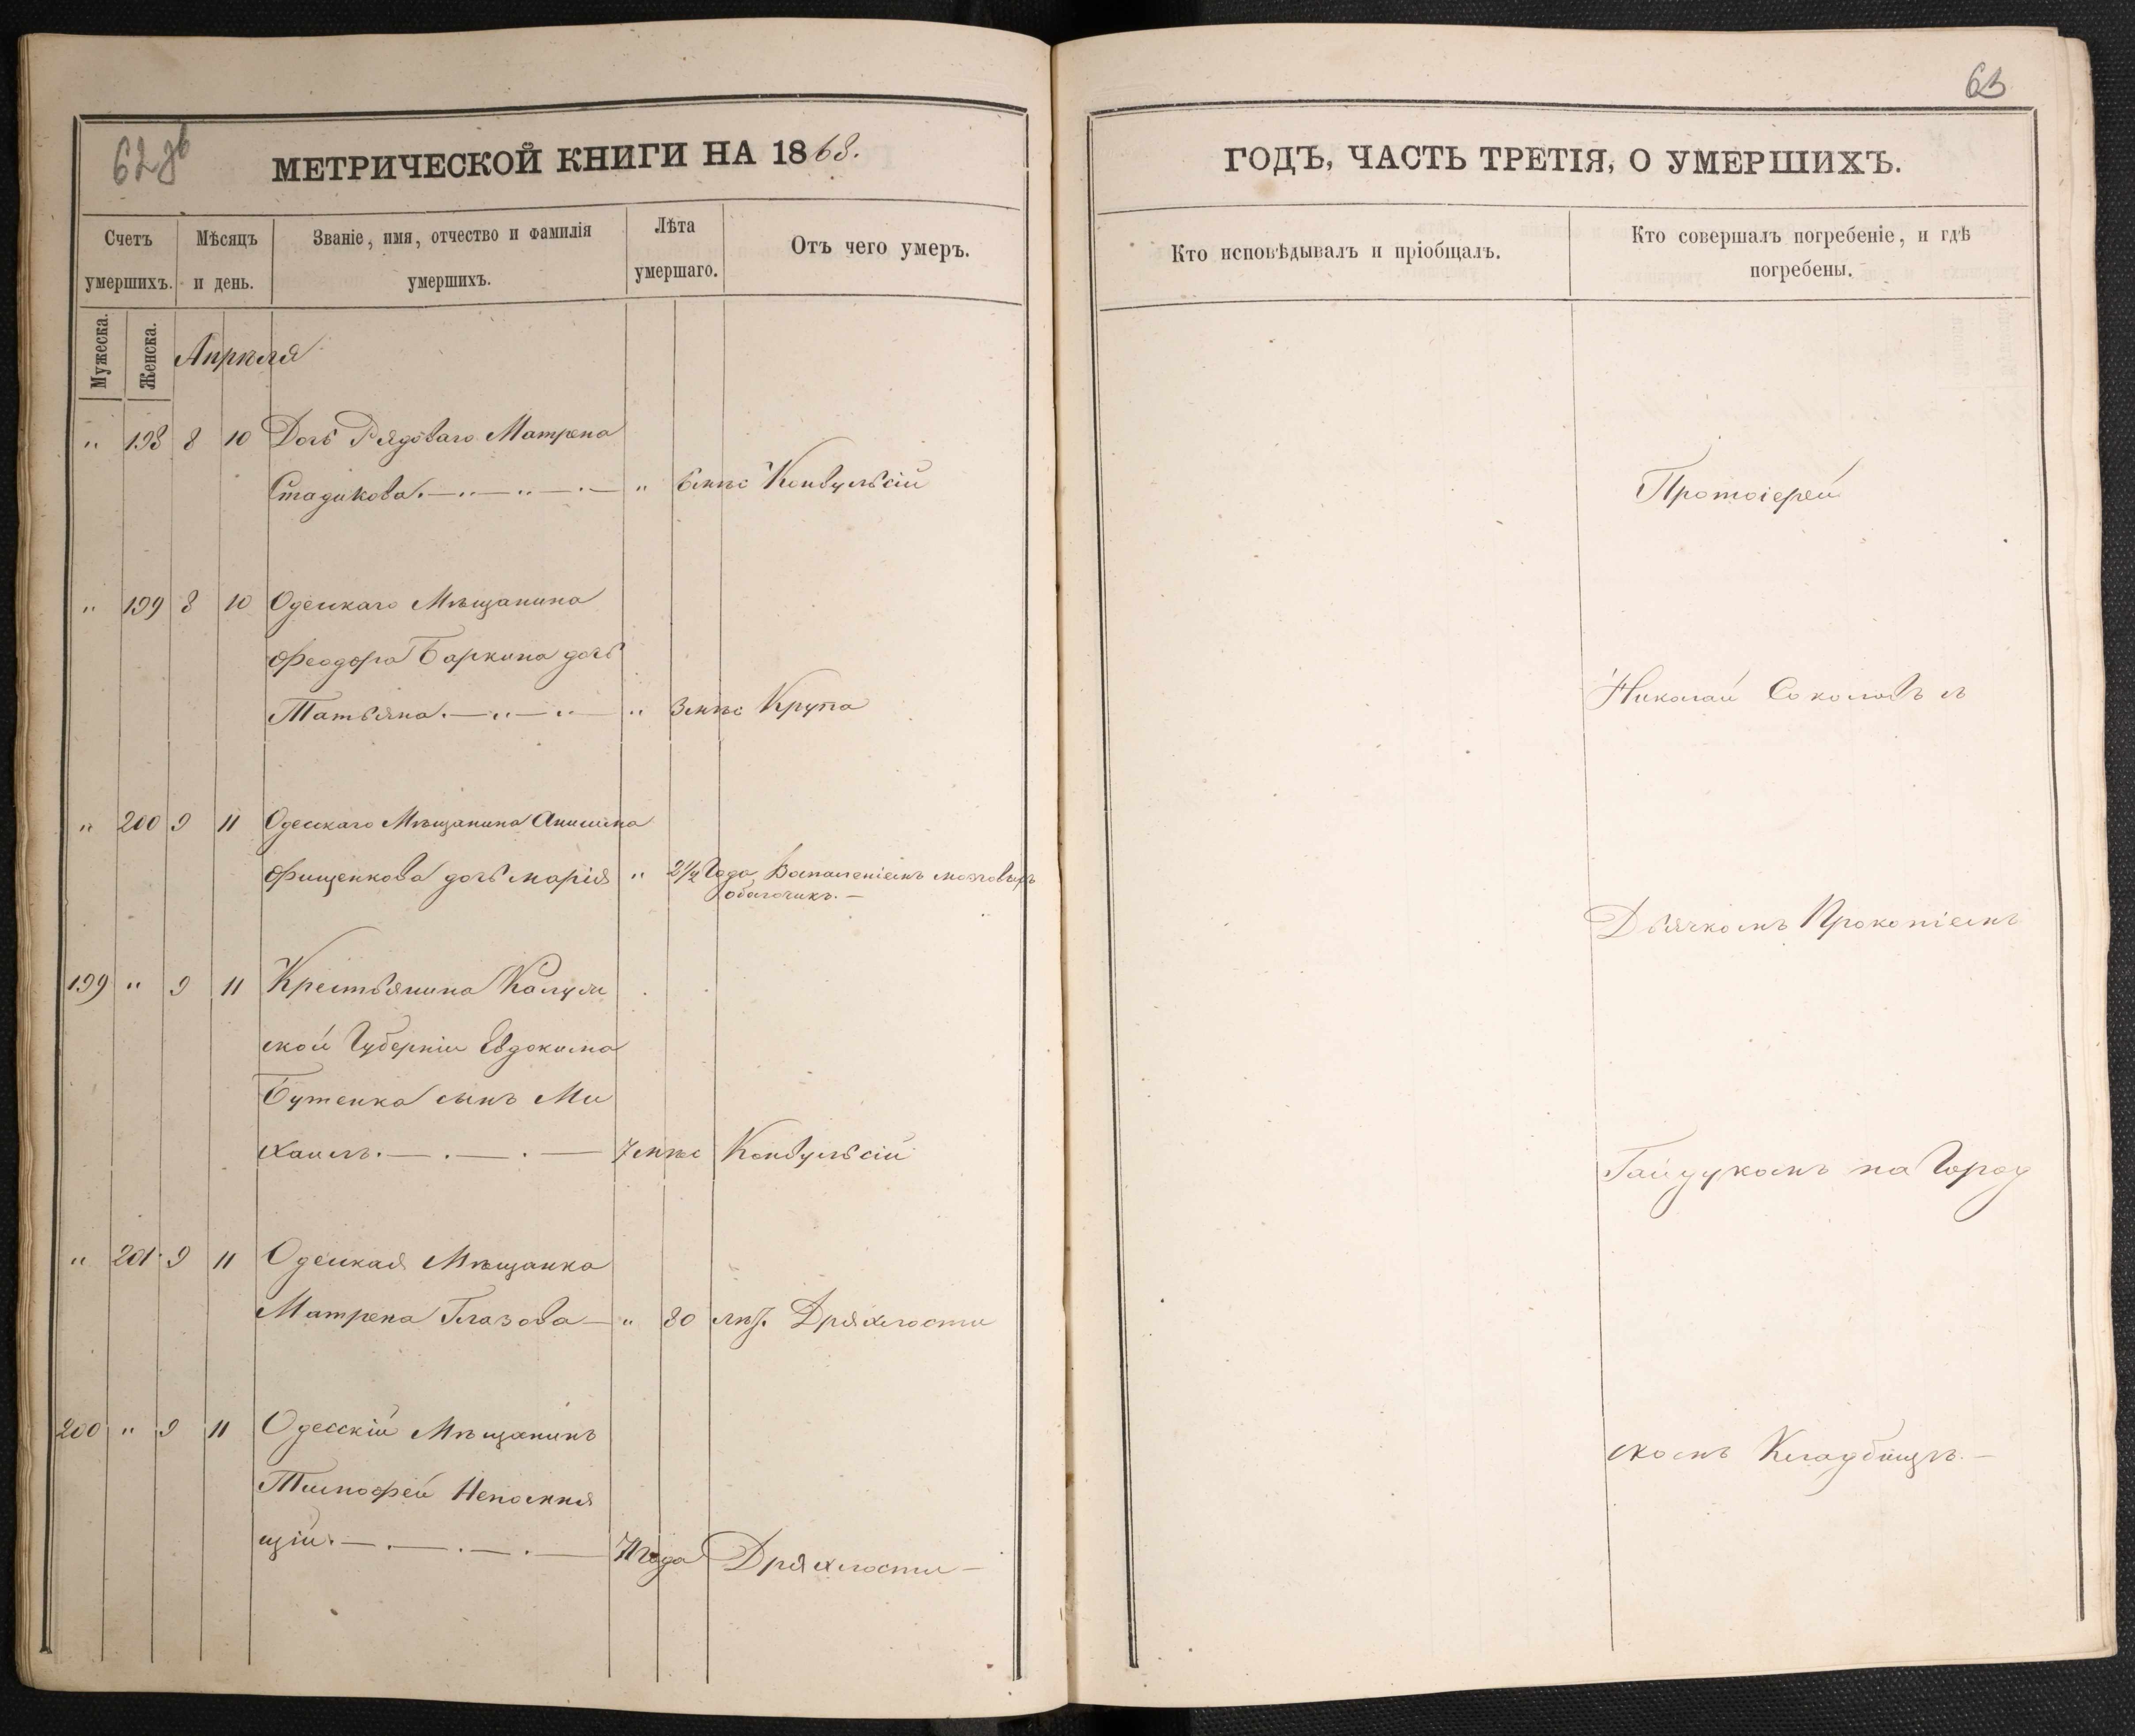 62 зв
МЕТРИЧЕСКОЙ КНИГИ НА 1868.
Счетъ умершихъ.
Мѣсяцъ и день.
Званіе, имя, отчество и фамилія умершихъ.
Лѣта умершаго.
Отъ чего умеръ.
Мужеска.
Женска.
Апрѣля
" 198 8 10 Дочь Рядоваго Матрена
Стадикова. " 6 мѣс Конвульсій
" 199 8 10 Одескаго Мѣщанина
Феодора Баркина дочь
Татьяна. " 3 мѣс Крупа
" 200 9 11 Одесскаго Мѣщанина Анисима
Фищенкова дочь Марія " 2½ Года Воспаленіемъ мозговыхъ
оболочикъ. —
199 " 9 11 Крестьянина Калуж
ской Губерніи Евдокима
Бутенка сынъ Ми
хаилъ. 7 мѣс Конвульсій
" 201 9 11 Одеская Мѣщанка
Матрена Глазова — " 80 лѣт. Дряхлости
200 " 9 11 Одесскій Мѣщанинъ
Тимофей Непомня
щій. 71 года Дряхлости —
63
ГОДЪ, ЧАСТЬ ТРЕТІЯ, О УМЕРШИХЪ.
Кто исповѣдывалъ и пріобщалъ.
Кто совершалъ погребеніе, и гдѣ
погребены.
Протоіерей
Николай Соколовъ съ
Дьячкомъ Прокопіемъ
Гайдукомъ на Город
скомъ Кладбищѣ. —